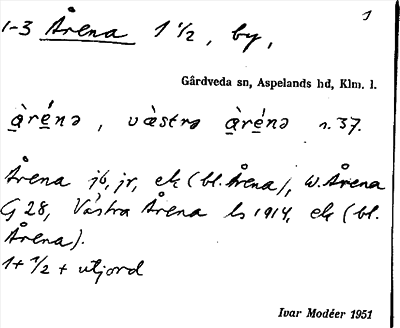 1
1-3 Årena 1 1/2, by,
Gårdveda sn, Aspelands hd, Klm. l.
å̀rénə, væ̀strə å̀rénə s. 37.
Årena jb, jr, ek (bl. Årena), W. Årena
G 28, Västra Årena ls 1914, ek (bl.
Årena).
1+ 1/2 + utjord
Ivar Modéer 1951